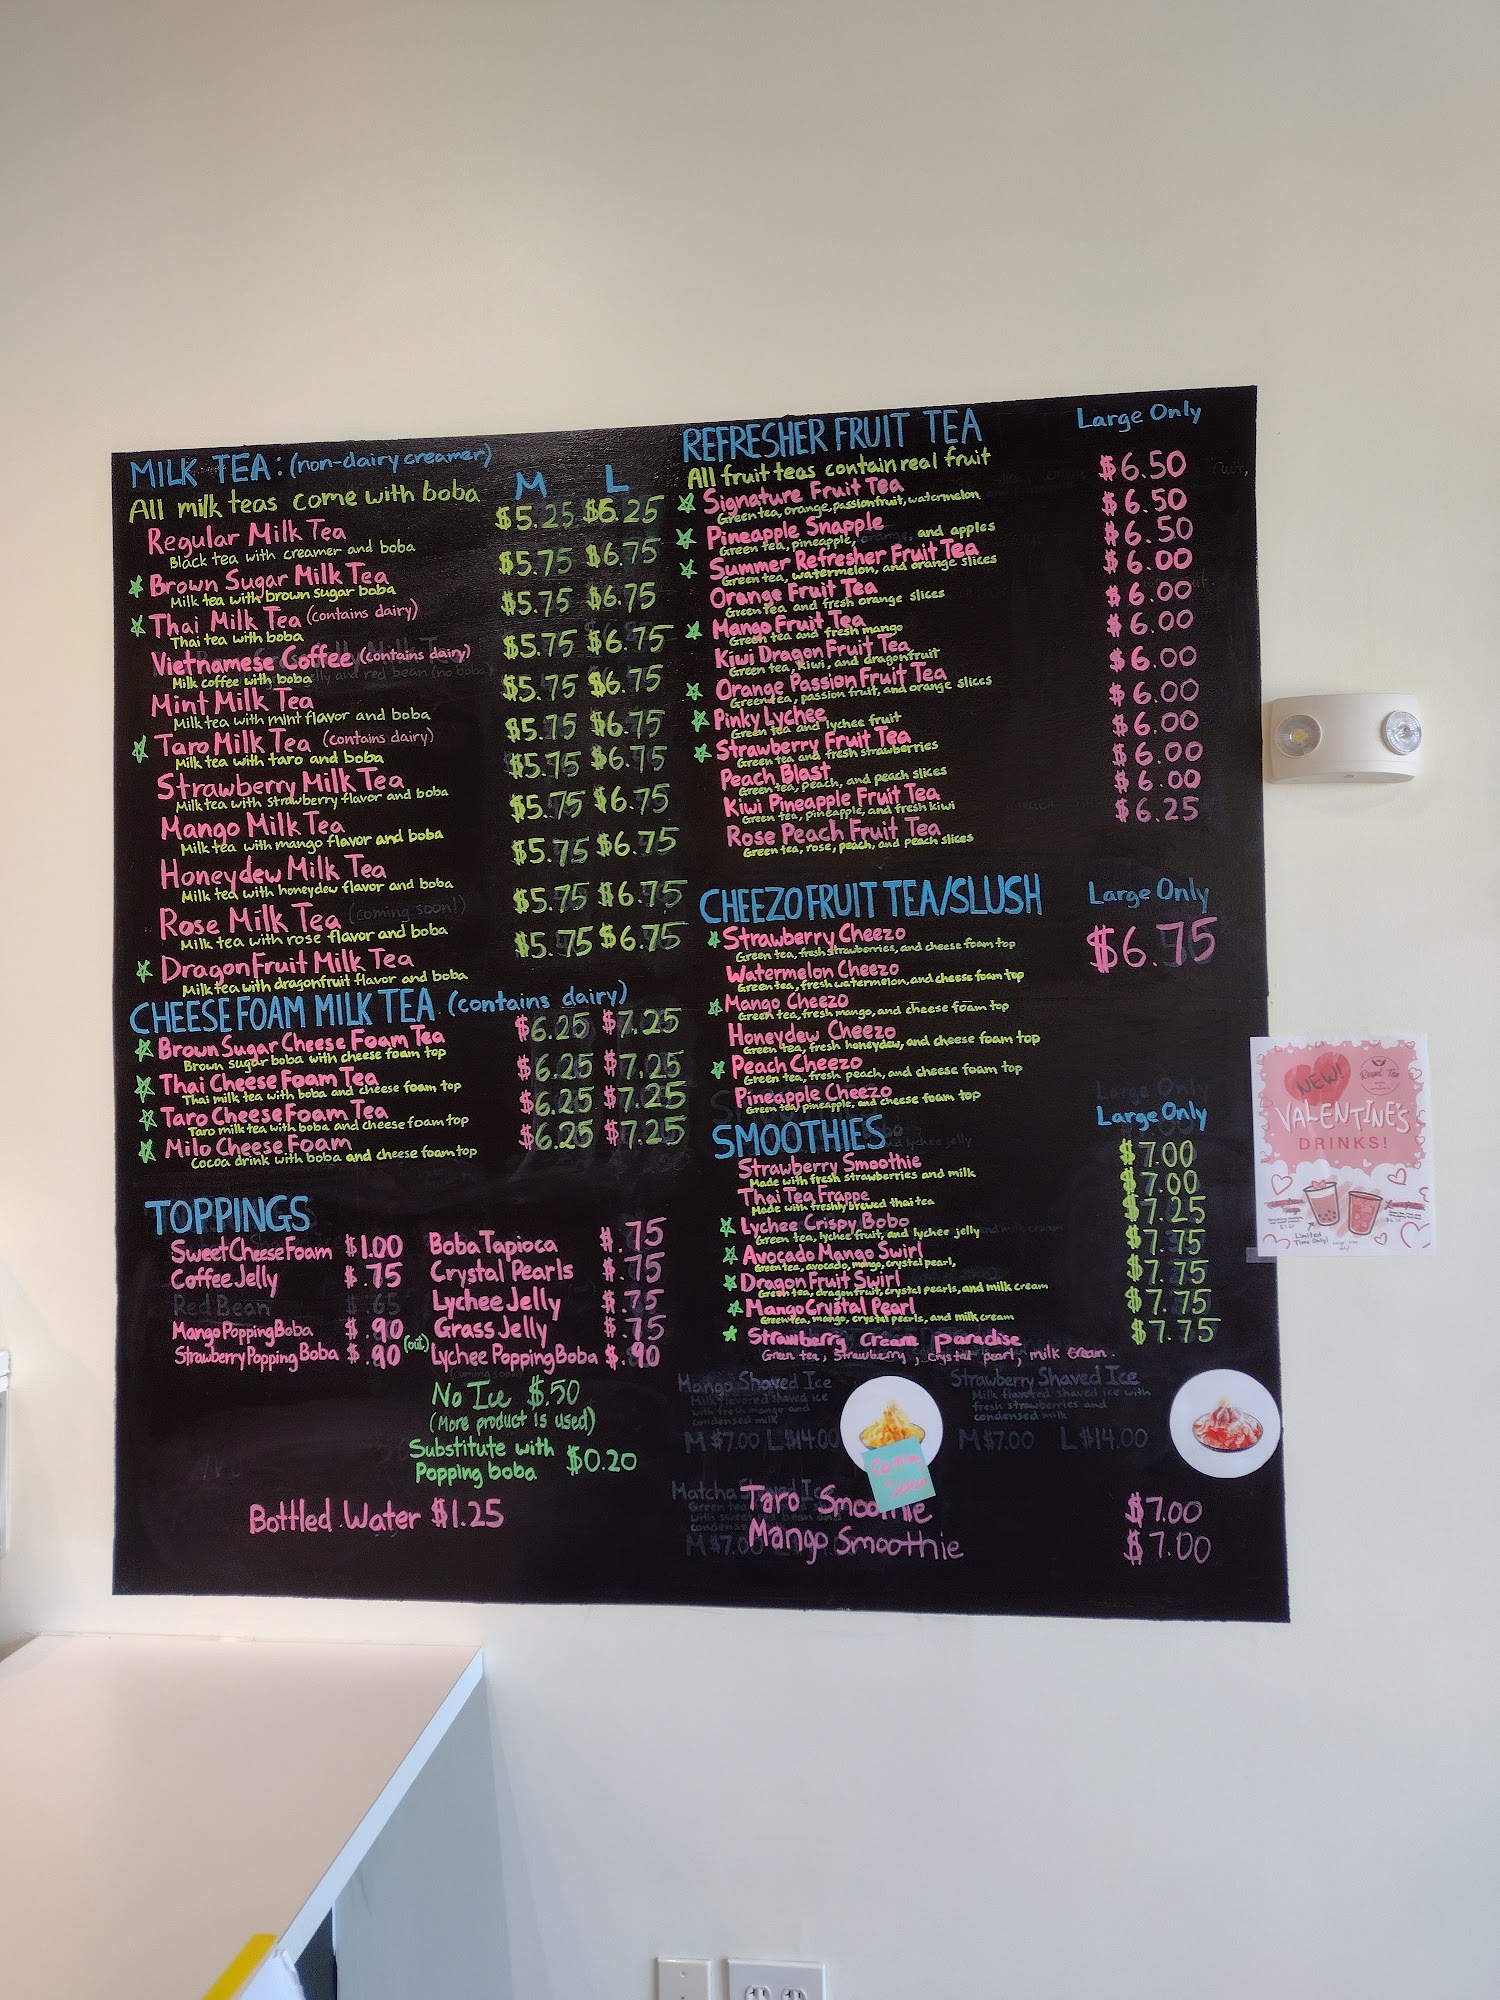 MILK TEA: (non-dairy creamer)
All milk teas come with boba
M L
Regular Milk Tea $5.25 $6.25
Black tea with creamer and boba
Brown Sugar Milk Tea $5.75 $6.75
Milk tea with brown sugar boba
Thai Milk Tea (contains dairy) $5.75 $6.75
Thai tea with boba
Vietnamese Coffee (contains dairy) $5.75 $6.75
Milk coffee with boba
Mint Milk Tea $5.75 $6.75
Milk tea with mint flavor and boba
Taro Milk Tea (contains dairy) $5.75 $6.75
Milk tea with taro and boba
Strawberry Milk Tea $5.75 $6.75
Milk tea with strawberry flavor and boba
Mango Milk Tea $5.75 $6.75
Milk tea with mango flavor and boba
Honeydew Milk Tea $5.75 $6.75
Milk tea with honeydew flavor and boba
Rose Milk Tea (coming soon!) $5.75 $6.75
Milk tea with rose flavor and boba
DragonFruit Milk Tea $5.75 $6.75
Milk tea with dragonfruit flavor and boba
CHEESE FOAM MILK TEA (contains dairy)
Brown Sugar Cheese Foam Tea $6.25 $7.25
Brown sugar boba with cheese foam top
Thai Cheese Foam Tea $6.25 $7.25
Thai milk tea with boba and cheese foam top
Taro Cheese Foam Tea $6.25 $7.25
Taro milk tea with boba and cheese foam top
Milo Cheese Foam $6.25 $7.25
Cocoa drink with boba and cheese foam top
TOPPINGS
Sweet Cheese Foam $1.00
Coffee Jelly $.75
Red Bean $.65
Mango Popping Boba $.90
Strawberry Popping Boba $.90 (out)
Boba Tapioca $.75
Crystal Pearls $.75
Lychee Jelly $.75
Grass Jelly $.75
Lychee Popping Boba $.90
No Ice $.50
(More product is used)
Substitute with
Popping boba $0.20
Bottled Water $1.25
REFRESHER FRUIT TEA Large Only
All fruit teas contain real fruit
Signature Fruit Tea $6.50
Green tea, orange, passionfruit, watermelon
Pineapple Snapple $6.50
Green tea, pineapple, orange, and apples
Summer Refresher Fruit Tea $6.50
Green tea, watermelon, and orange slices
Orange Fruit Tea $6.00
Green tea and fresh orange slices
Mango Fruit Tea $6.00
Green tea and fresh mango
Kiwi Dragon Fruit Tea $6.00
Green tea, kiwi, and dragonfruit
Orange Passion Fruit Tea $6.00
Green tea, passion fruit, and orange slices
Pinky Lychee $6.00
Green tea and lychee fruit
Strawberry Fruit Tea $6.00
Green tea and fresh strawberries
Peach Blast $6.00
Green tea, peach, and peach slices
Kiwi Pineapple Fruit Tea $6.00
Green tea, pineapple, and fresh kiwi
Rose Peach Fruit Tea $6.25
Green tea, rose, peach, and peach slices
CHEEZO FRUIT TEA/SLUSH Large Only
Strawberry Cheezo $6.75
Green tea, fresh strawberries, and cheese foam top
Watermelon Cheezo
Green tea, fresh watermelon, and cheese foam top
Mango Cheezo
Green tea, fresh mango, and cheese foam top
Honeydew Cheezo
Green tea, fresh honeydew, and cheese foam top
Peach Cheezo
Green tea, fresh peach, and cheese foam top
Pineapple Cheezo
Green tea, pineapple, and cheese foam top
SMOOTHIES Large Only
Strawberry Smoothie $7.00
Made with fresh strawberries and milk
Thai Tea Frappe $7.00
Made with freshly brewed thai tea
Lychee Crispy Bobo $7.25
Green tea, lychee fruit, and lychee jelly
Avocado Mango Swirl $7.75
Green tea, avocado, mango, crystal pearl,
Dragon Fruit Swirl $7.75
Green tea, dragonfruit, crystal pearls, and milk cream
Mango Crystal Pearl $7.75
Green tea, mango, crystal pearls, and milk cream
Strawberry Cream Paradise $7.75
Green tea, strawberry, crystal pearl, milk cream.
Mango Shaved Ice
Milk flavored shaved ice
with fresh mango and
condensed milk
M $7.00 L $14.00
Strawberry Shaved Ice
Milk flavored shaved ice with
fresh strawberries and
condensed milk
M $7.00 L $14.00
Coming
Soon!
Matcha Shaved Ice
Taro Smoothie $7.00
Mango Smoothie $7.00
NEW!
Royal Tea
VALENTINE'S
DRINKS!
Limited
Time Only!